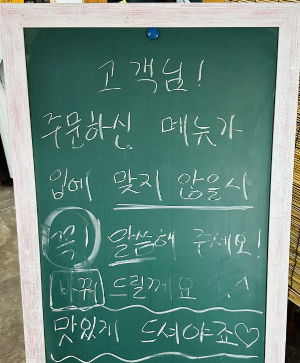 고객님!
주문하신 메뉴가
입에 맞지 않을시
꼭! 말씀해 주세요!
바꿔 드릴께요 ^.^
맛있게 드셔야죠♡